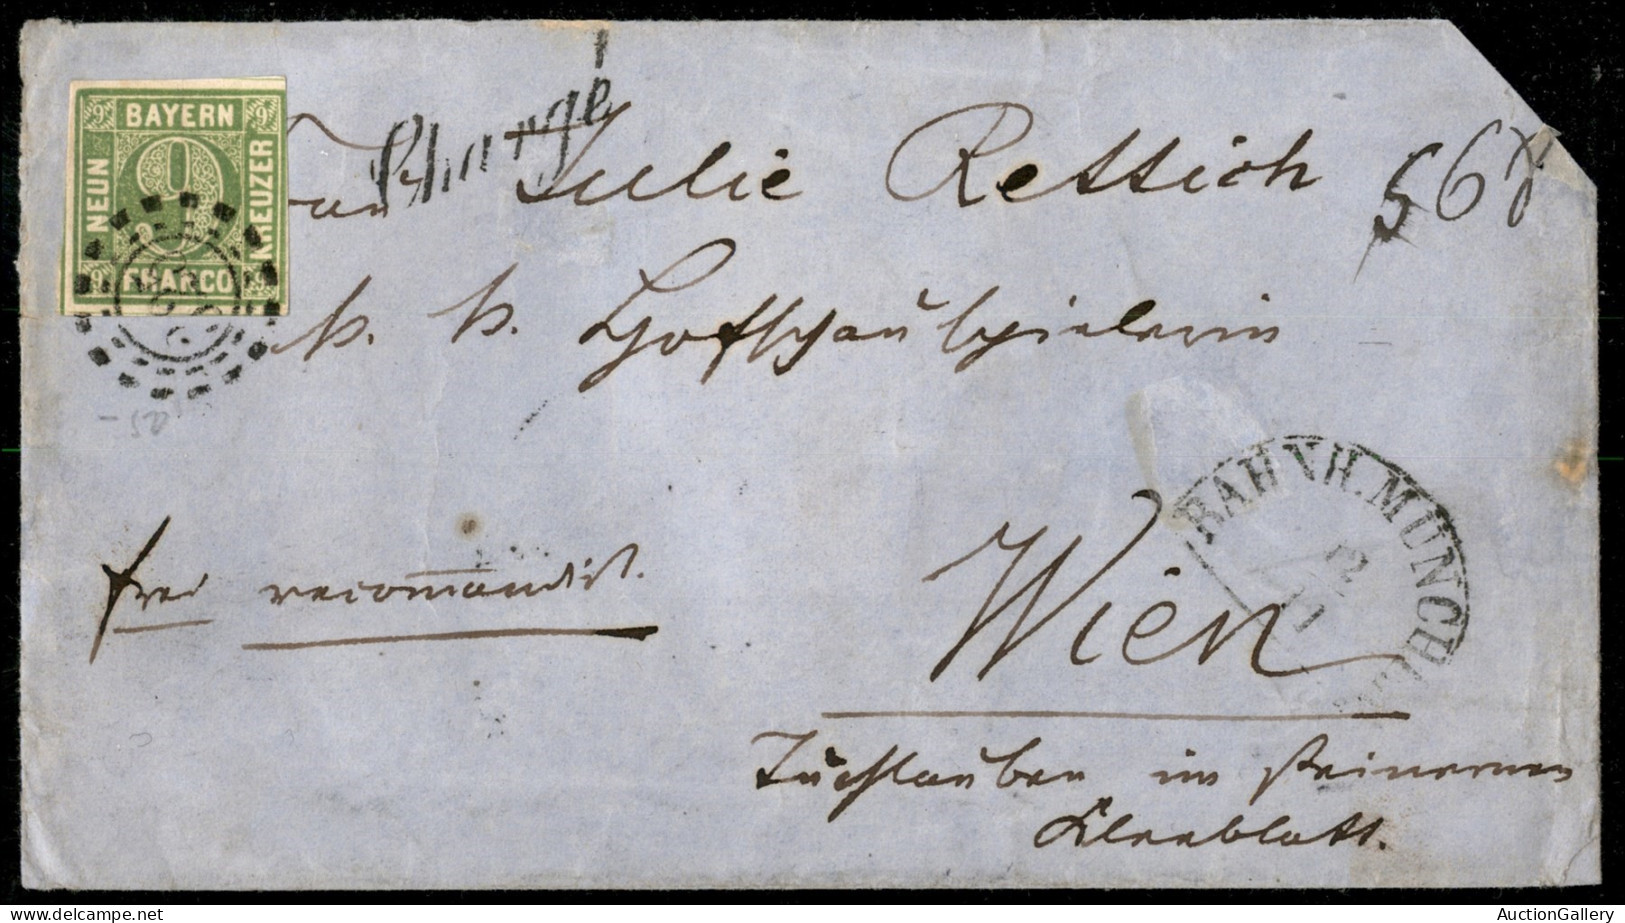 BAYERN
NEUN
KREUZER
9 9
9
9 9
FRANCO
Chargé
Frau Julie Rettich
568
k. k. Hofschauspielerin
frei recomandirt.
Wien
BAHNH. MÜNCHEN
Tuchlauben im steinernen
Kleeblatt.
AuctionGallery